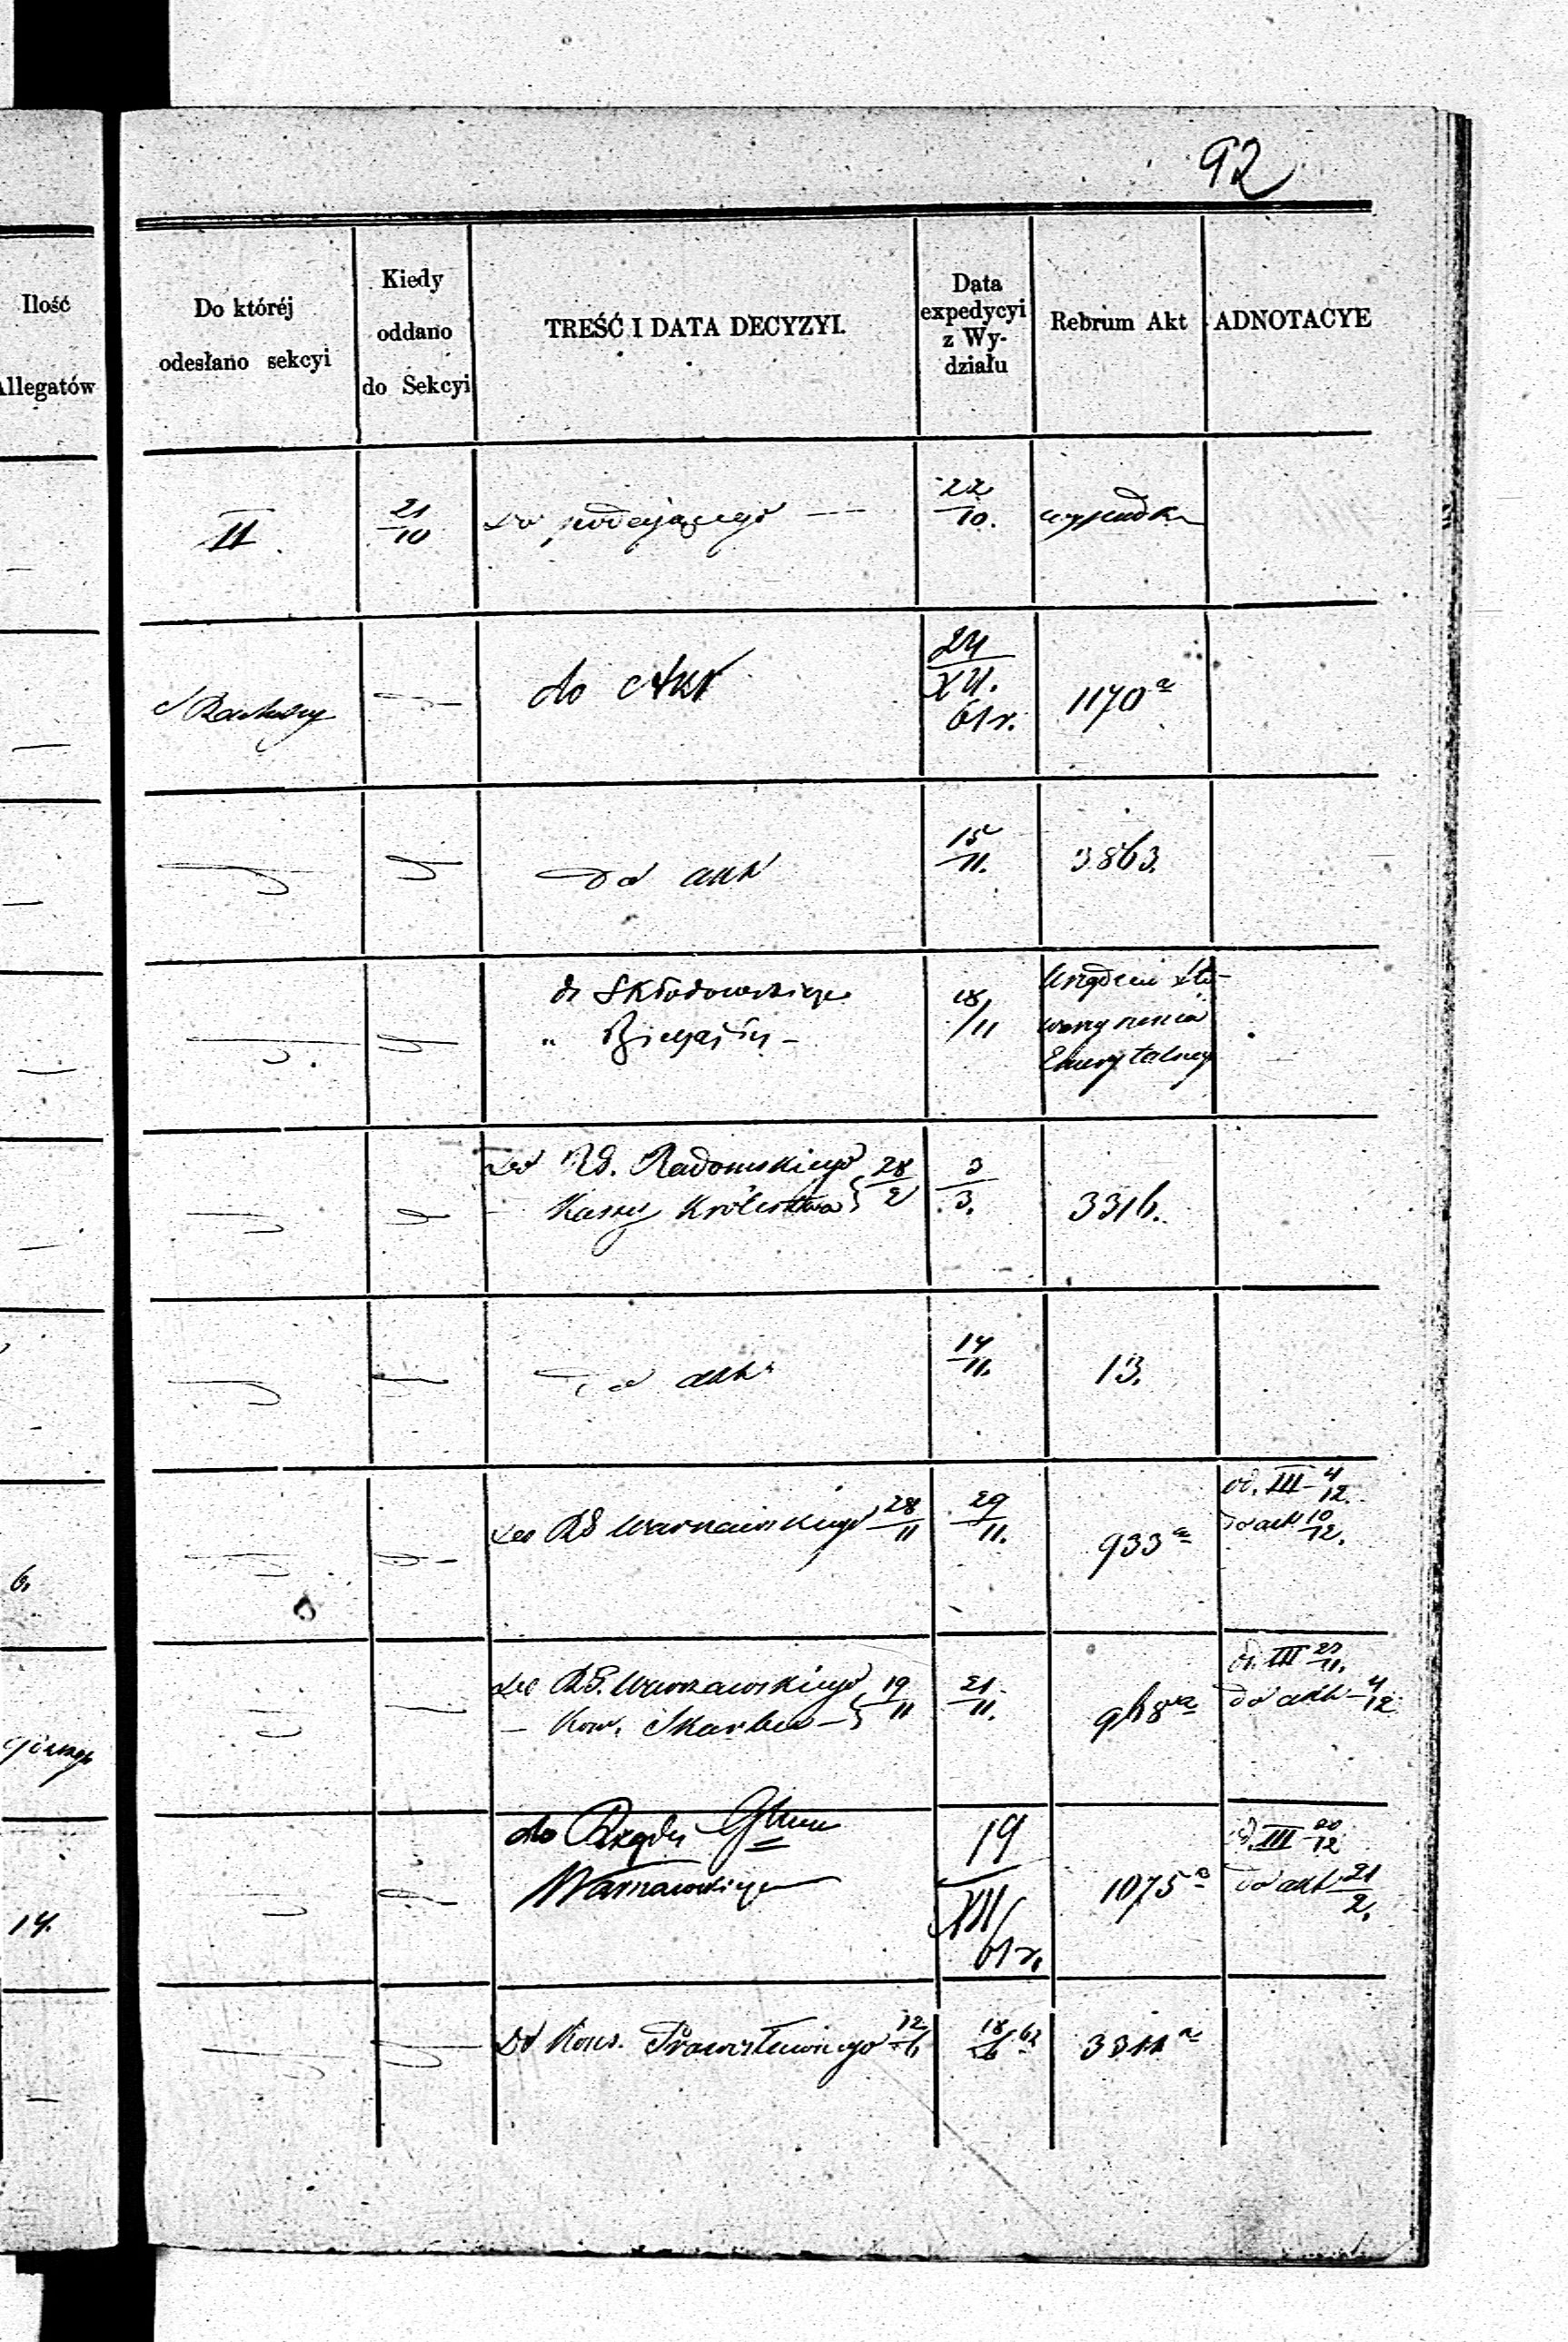 92
Ilość
Allegatów
Do któréj
odesłano sekcyi
Kiedy
oddano
do Sekcyi
TREŚĆ I DATA DECYZYI.
Data
expedycyi
z Wy-
działu
Rebrum Akt
ADNOTACYE
II.
21/10
Do podającego —
22/10.
do Akt
24/XII.
61 r.
1170 a
do akt
15/11.
3863.
do Skłodowskiego
"
18/11
Emerytalnego
Do RG. Radomskiego } 28/2
Kassy Królestwa
3/3.
3316.
do akt
14/11.
13.
6.
Do RG Warszawskiego 28/11
29/11.
933 a
od. III 4/12.
do akt 10/12.
do RG. Warszawskiego } 19/11
— Kom. Skarbu —
21/11.
968 a
od. III 27/11.
do akt 4/12.
14.
do Rządu Gbern
Warszawskiego
19/XII/
61 r.
1075 a
od. III 20/12
do akt 21/2.
Do Kons. Prawosławnego 12/6
18/6 62